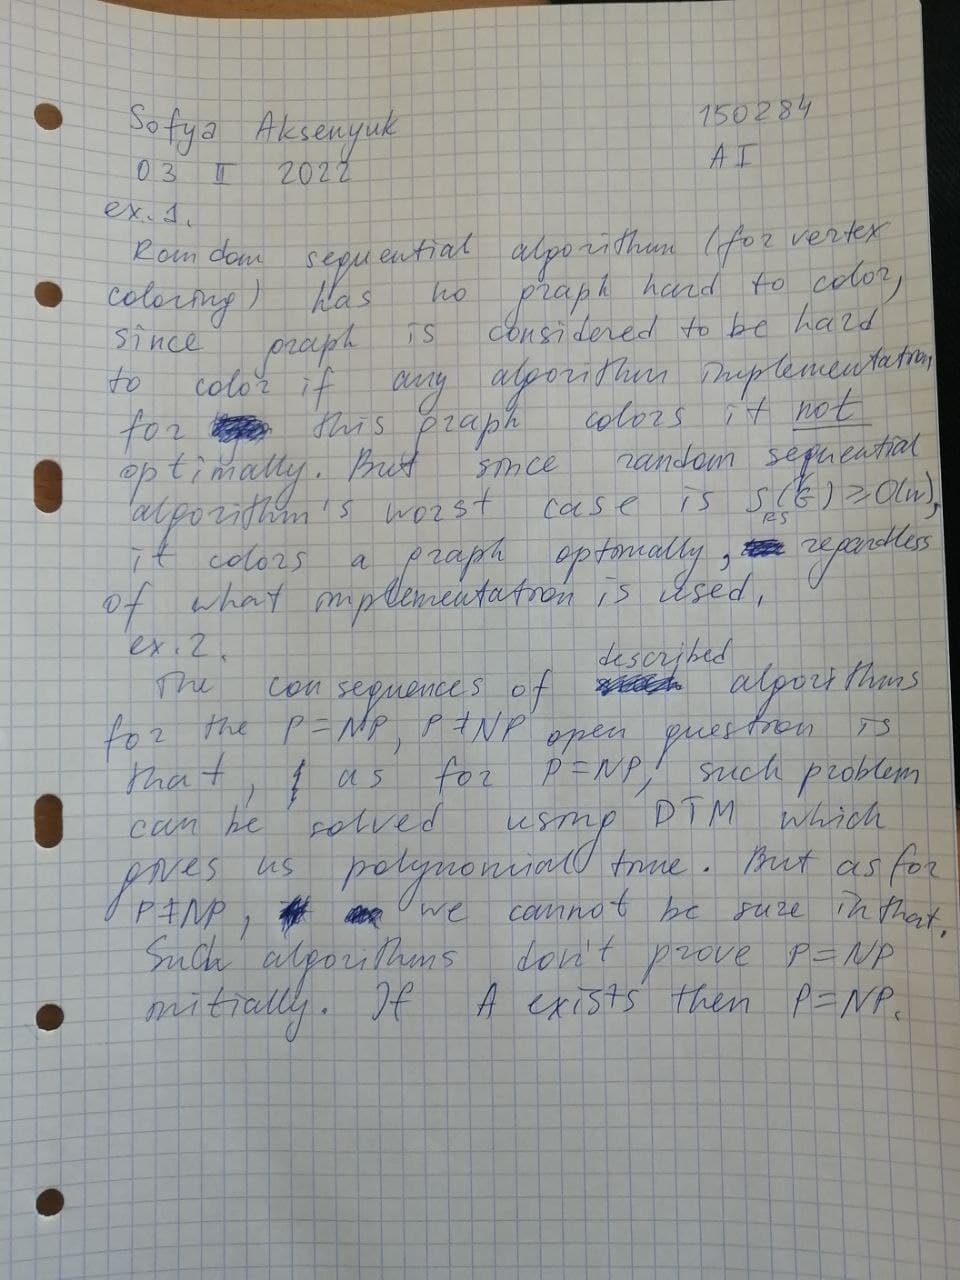 Sofya Aksenyuk 150284
03 II 2022 AI
ex. 1.
Random sequential algorithm (for vertex
coloring) has no graph hard to color,
since graph is considered to be hard
to color if any algorithm implementation
for this graph colors it not
optimally. But since random sequential
algorithm's worst case is S_RS(G) ≥ O(n),
it colors a graph optimally, regardless
of what implementation is used.
ex. 2.
described
The consequences of algorithms
for the P=NP, P≠NP open question is
that, as for P=NP, such problem
can be solved using DTM which
gives us polynomial time. But as for
P≠NP, we cannot be sure in that.
Such algorithms don't prove P=NP
initially. If A exists then P=NP.